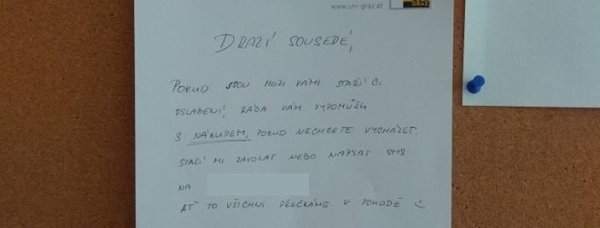 www.uni-graz.at
GRAZ
DRAZÍ SOUSEDÉ,
POKUD JSOU MEZI VÁMI STARŠÍ ČI
OSLABENÍ, RÁDA VÁM VYPOMŮŽU
S NÁKUPEM, POKUD NECHCETE VYCHÁZET
STAČÍ MI ZAVOLAT NEBO NAPSAT SMS
NA
AŤ TO VŠICHNI PŘEČKÁME V POHODĚ